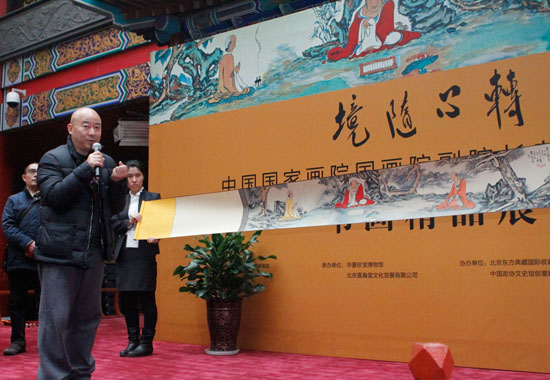 境隨心轉
中国国家画院国画院副院长
画精品展
承办单位：华夏珍宝博物馆
北京嘉翰堂文化发展有限公司
协办单位：北京东方典藏国际收藏
中国政协文史馆创意